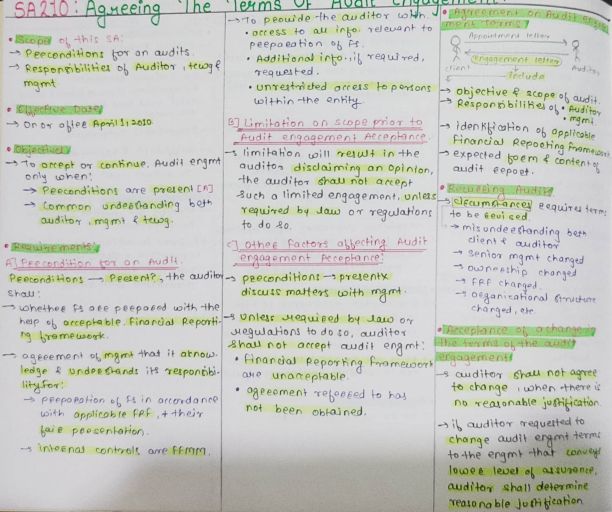 SA210: Agreeing The Terms Of Audit Engagement
• Scope of this SA:
→ Preconditions for an audits.
→ Responsibilities of Auditor, tcwg &
mgmt
• Effective Date:
→ On or after April 1, 2010
• Objective:
→ To accept or continue Audit engmt
only when:
→ Preconditions are present [A]
→ Common understanding betn
auditor, mgmt & tcwg.
• Requirements:
A] Precondition for an Audit.
Preconditions → Present?, the auditor
shall:
→ whether FS are prepared with the
help of acceptable Financial Reporti-
ng framework.
→ agreement of mgmt that it aknow-
ledge & understands its responsibi-
lity for:
→ preparation of FS in accordance
with applicable FRF, + their
fair presentation.
→ internal controls are FFMM.
→ To provide the auditor with
• access to all info. relevant to
preparation of FS.
• Additional info. if required,
requested.
• unrestricted access to persons
within the entity
B] Limitation on scope prior to
Audit engagement Acceptance.
→ limitation will result in the
auditor disclaiming an opinion,
the auditor shall not accept
such a limited engagement, unless
required by law or regulations
to do so.
C] Other factors affecting Audit
engagement Acceptance:
→ preconditions → present x
discuss matters with mgmt.
→ unless required by law or
regulations to do so, auditor
shall not accept audit engmt:
• Financial Reporting Framework
are unacceptable.
• agreement referred to has
not been obtained.
• Agreement on Audit Engage-
ment Terms:
Appointment letter
Engagement letter
client
Auditor
Include
→ objective & scope of audit.
→ Responsibilities of • Auditor
• mgmt
→ identification of applicable
Financial Reporting Framework
→ expected form & content of
audit report.
• Recurring Audits
→ circumstances requires terms
to be revised
→ misunderstanding betn
client & auditor
→ Senior mgmt changed
→ ownership changed
→ FRF changed.
→ organizational structure
changed, etc.
• Acceptance of a change in
the terms of the audit
engagement:
→ auditor shall not agree
to change, when there is
no reasonable justification.
→ if auditor requested to
change audit engmt terms
to the engmt that conveys
lower level of assurance,
auditor shall determine
reasonable justification